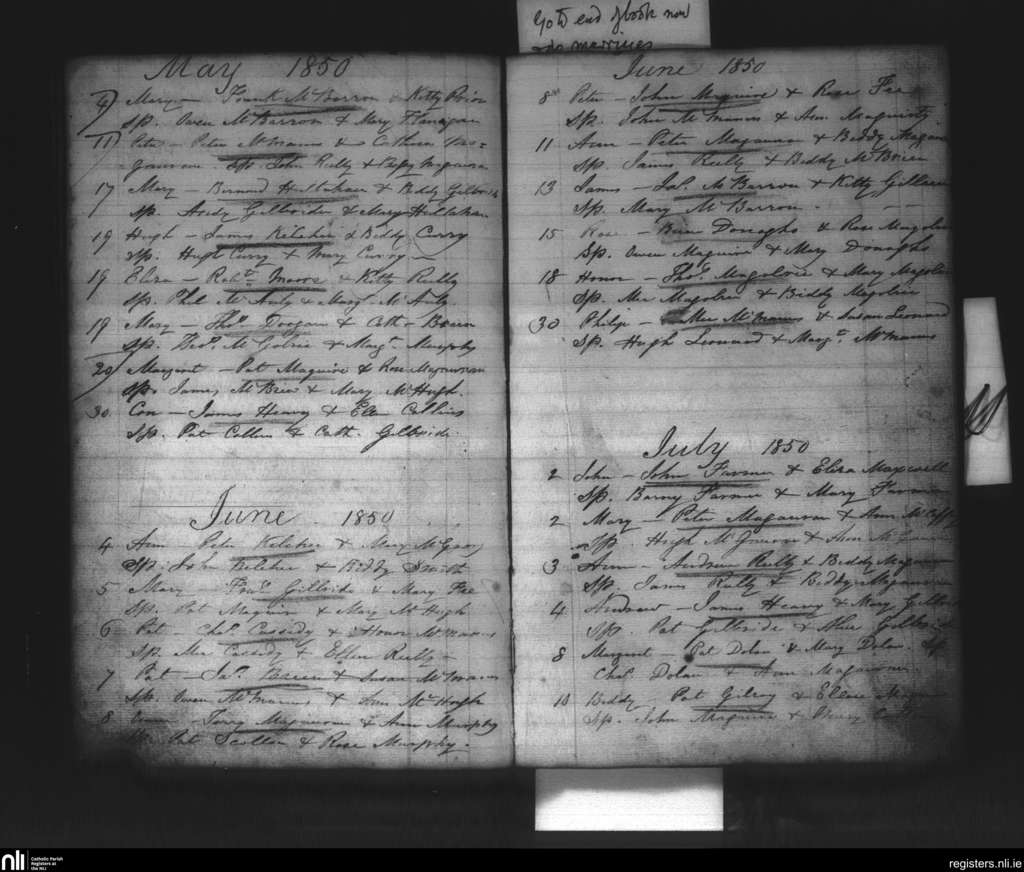 Go to end of book now
for marriages
May 1850
9) Mary — Frank McBarron & Kitty Prior
Sp. Owen McBarron & Mary Flanagan
11) Peter — Peter McManus & Cathrine
Sp. John Reilly & Peggy Maguire
17 Mary — Bernard & Biddy Gilbride
Sp. Andy Gilbride & Mary
19 Hugh — James Kilcher & Biddy Curry
Sp. Hugh Curry & Mary Curry —
19 Eliza — Robt. Moore & Kitty Reilly
Sp. Phil McAnly & Mary McAnly.
19 Mary — Thos. Doogan & Cath. Breen
Sp. Thos. & Margt. Murphy
20) Margaret — Pat Maguire & Rose Magauran
Sp. James McBrien & Mary McHugh.
30 Con — James Heavy & Ellen Collins
Sp. Pat Cullen & Cath. Gilbride.
June 1850
4 Ann — Peter Kilcher & Mary
Sp. John Kilcher & Biddy Smith
5 Mary Gilbride & Mary Fee
Sp. Pat Maguire & Mary McHugh
6 Pat — Chas. Cassidy & Honor McManus
Sp. Mic Cassidy & Ellen Reilly —
7 Pat — Jas. Breen & Susan McManus
Sp. Owen McManus & Ann McHugh
8 Terry Magauran & Ann Murphy
Sp. Pat Scollan & Rose Murphy.
June 1850
8 Peter — John Maguire & Rose Fee
Sp. John McManus & Ann
11 Ann — Peter Magauran & Biddy
Sp. James Reilly & Biddy McBrien
13 James — Jas. McBarron & Kitty
Sp. Mary McBarron. — —
15 Rose — Donaghs & Rose
Sp. Owen Maguire & Mary Donaghs
18 Honor — Thos. Magolric & Mary
Sp. Mic Magolric & Biddy Magolric
(30 Philip — Mic McManus & Susan Leonard
Sp. Hugh Leonard & Margt. McManus
July 1850
2 John — John Farmer & Eliza Maxwell
Sp. Barny Farmer & Mary Farmer
2 Mary — Peter Magauran & Ann
Sp. Hugh & Ann
(3 Ann — Andrew Reilly & Biddy
Sp. James Reilly & Biddy Magauran
4 Andrew — James Heavy & Mary
Sp. Pat Gilbride &
8 Margaret — Pat Dolan & Mary Dolan. Sp.
Chas. Dolan & Ann Magauran.
10 Biddy — Pat Gilroy & Ellen
Sp. John Maguire &
nli
Catholic Parish
Registers at
the NLI
registers.nli.ie